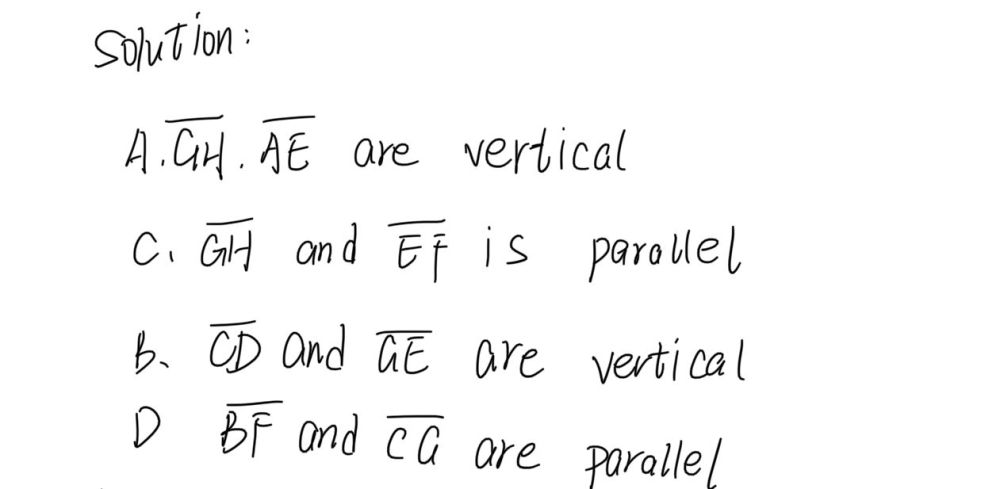 Solution:
A. G̅H̅. A̅E̅ are vertical
C. G̅H̅ and E̅F̅ is parallel
B. C̅D̅ and G̅E̅ are vertical
D B̅F̅ and C̅G̅ are parallel